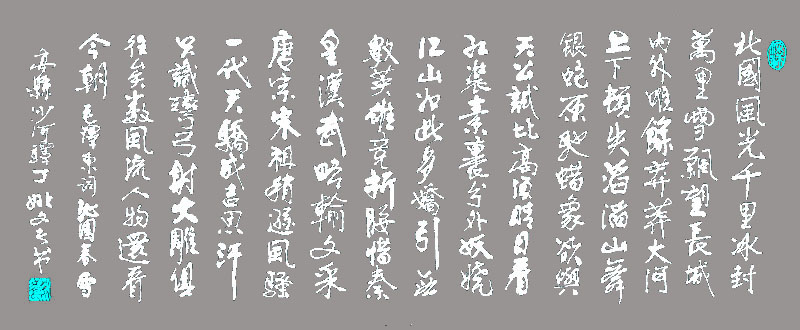 北國風光千里冰封
萬里雪飄望長城
内外唯餘莽莽大河
上下頓失滔滔山舞
銀蛇原馳蜡象欲與
天公試比高須晴日看
紅裝素裹分外妖嬈
江山如此多嬌引無
數英雄竞折腰惜秦
皇漢武略輸文采
唐宗宋祖稍遜風騷
一代天驕成吉思汗
只識彎弓射大雕俱
往矣数風流人物還看
今朝 毛澤東詞沁園春雪
沙河驛